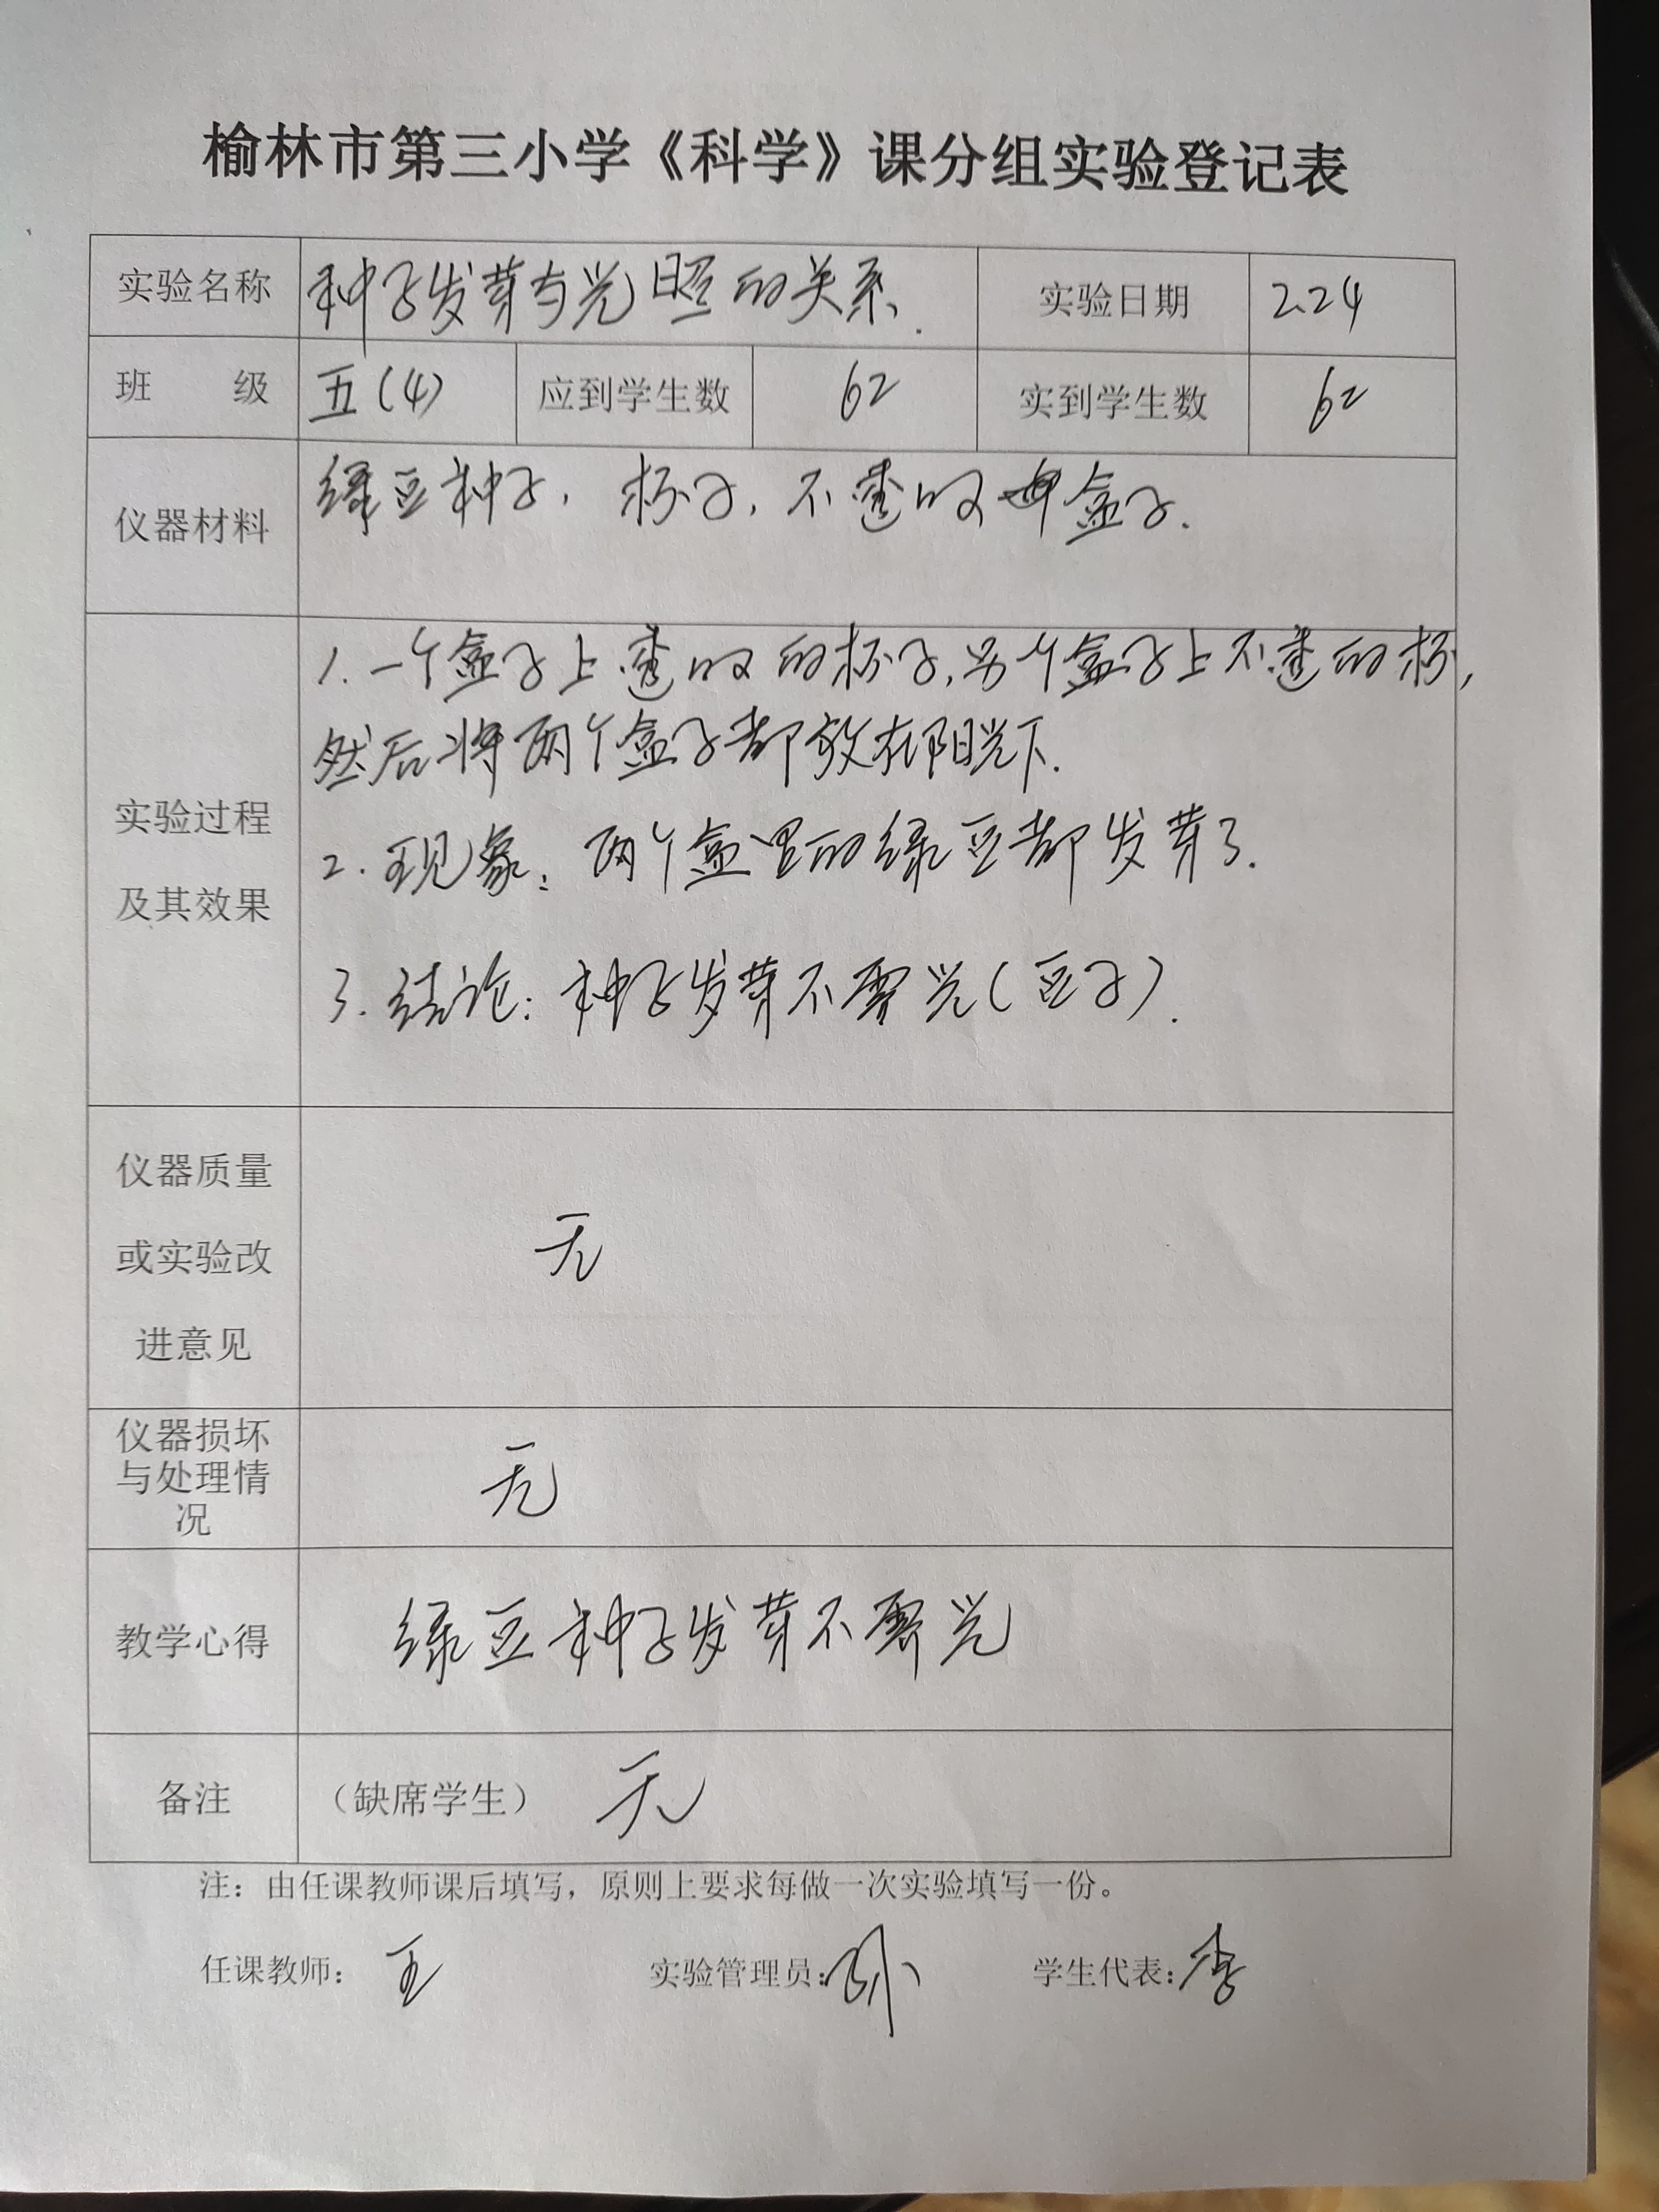 榆林市第三小学《科学》课分组实验登记表
实验名称 种子发芽与光照的关系. 实验日期 2.24
班 级 五(4) 应到学生数 62 实到学生数 62
仪器材料 绿豆种子, 杯子, 不透 盒子.
实验过程
及其效果
1. 一个盒子上透 的杯子, 另个盒子上不透的杯,
然后将两个盒子都放在阳光下.
2. 现象: 两个盒里的绿豆都发芽了.
3. 结论: 种子发芽不需光(豆子).
仪器质量
或实验改
进意见
无
仪器损坏
与处理情
况
无
教学心得 绿豆种子发芽不需光
备注 (缺席学生) 无
注：由任课教师课后填写，原则上要求每做一次实验填写一份。
任课教师: 王 实验管理员: 孙 学生代表: 李